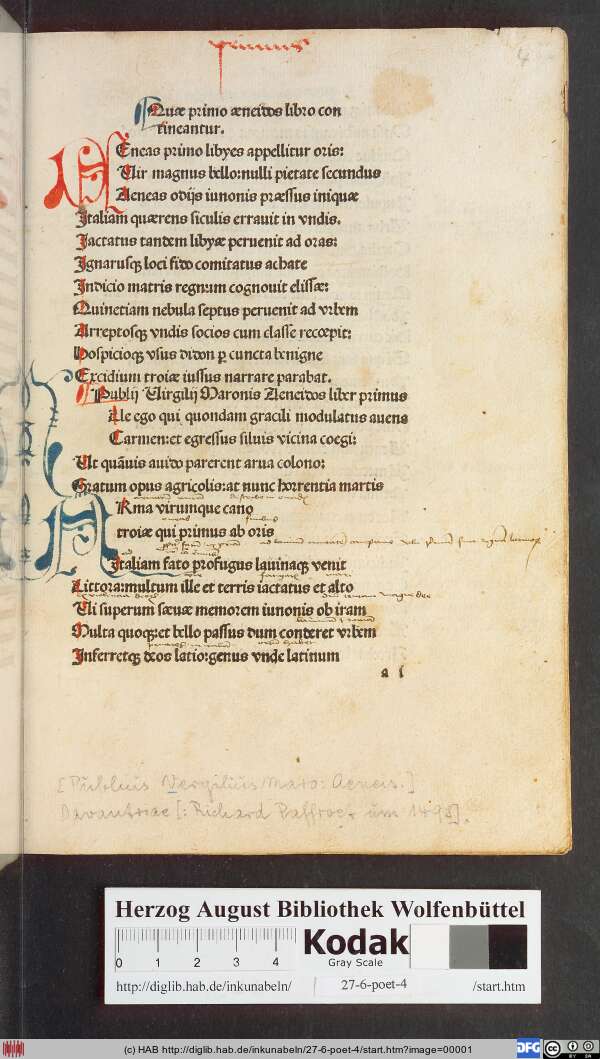 primus
4
Quæ primo æneidos libro con
tineantur.
AEneas primo libyes appellitur oris:
Uir magnus bello:nulli pietate secundus
Aeneas odijs iunonis præssus iniquæ
Italiam quærens siculis errauit in vndis.
Jactatus tandem libyæ peruenit ad oras:
Ignarusqꝫ loci fido comitatus achate
Indicio matris regnum cognouit elissæ:
Quinetiam nebula septus peruenit ad vrbem
Arreptosqꝫ vndis socios cum classe recœpit:
Hospicioqꝫ vsus didon ꝑ cuncta benigne
Excidium troiæ iussus narrare parabat.
Publij Uirgilij Maronis Aeneidos liber primus
Ile ego qui quondam gracili modulatus auena
Carmen:et egressus siluis vicina coegi:
Ut quãuis auido parerent arua colono:
Gratum opus agricolis:at nunc horrentia martis
ARma virumque cano
troiæ qui primus ab oris
Italiam fato profugus lauinaqꝫ venit
Littora:multum ille et terris iactatus et alto
Ui superum sæuæ memorem iunonis ob iram
Multa quoqꝫ:et bello passus dum conderet vrbem
Inferretqꝫ deos latio:genus vnde latinum
a i
[Publius Vergilius Maro: Aeneis.]
Davantriae [: Richard Paffroet um 1498].
Herzog August Bibliothek Wolfenbüttel
0 1 2 3 4
Kodak
Gray Scale
http://diglib.hab.de/inkunabeln/ 27-6-poet-4 /start.htm
(c) HAB http://diglib.hab.de/inkunabeln/27-6-poet-4/start.htm?image=00001
DFG
cc BY SA